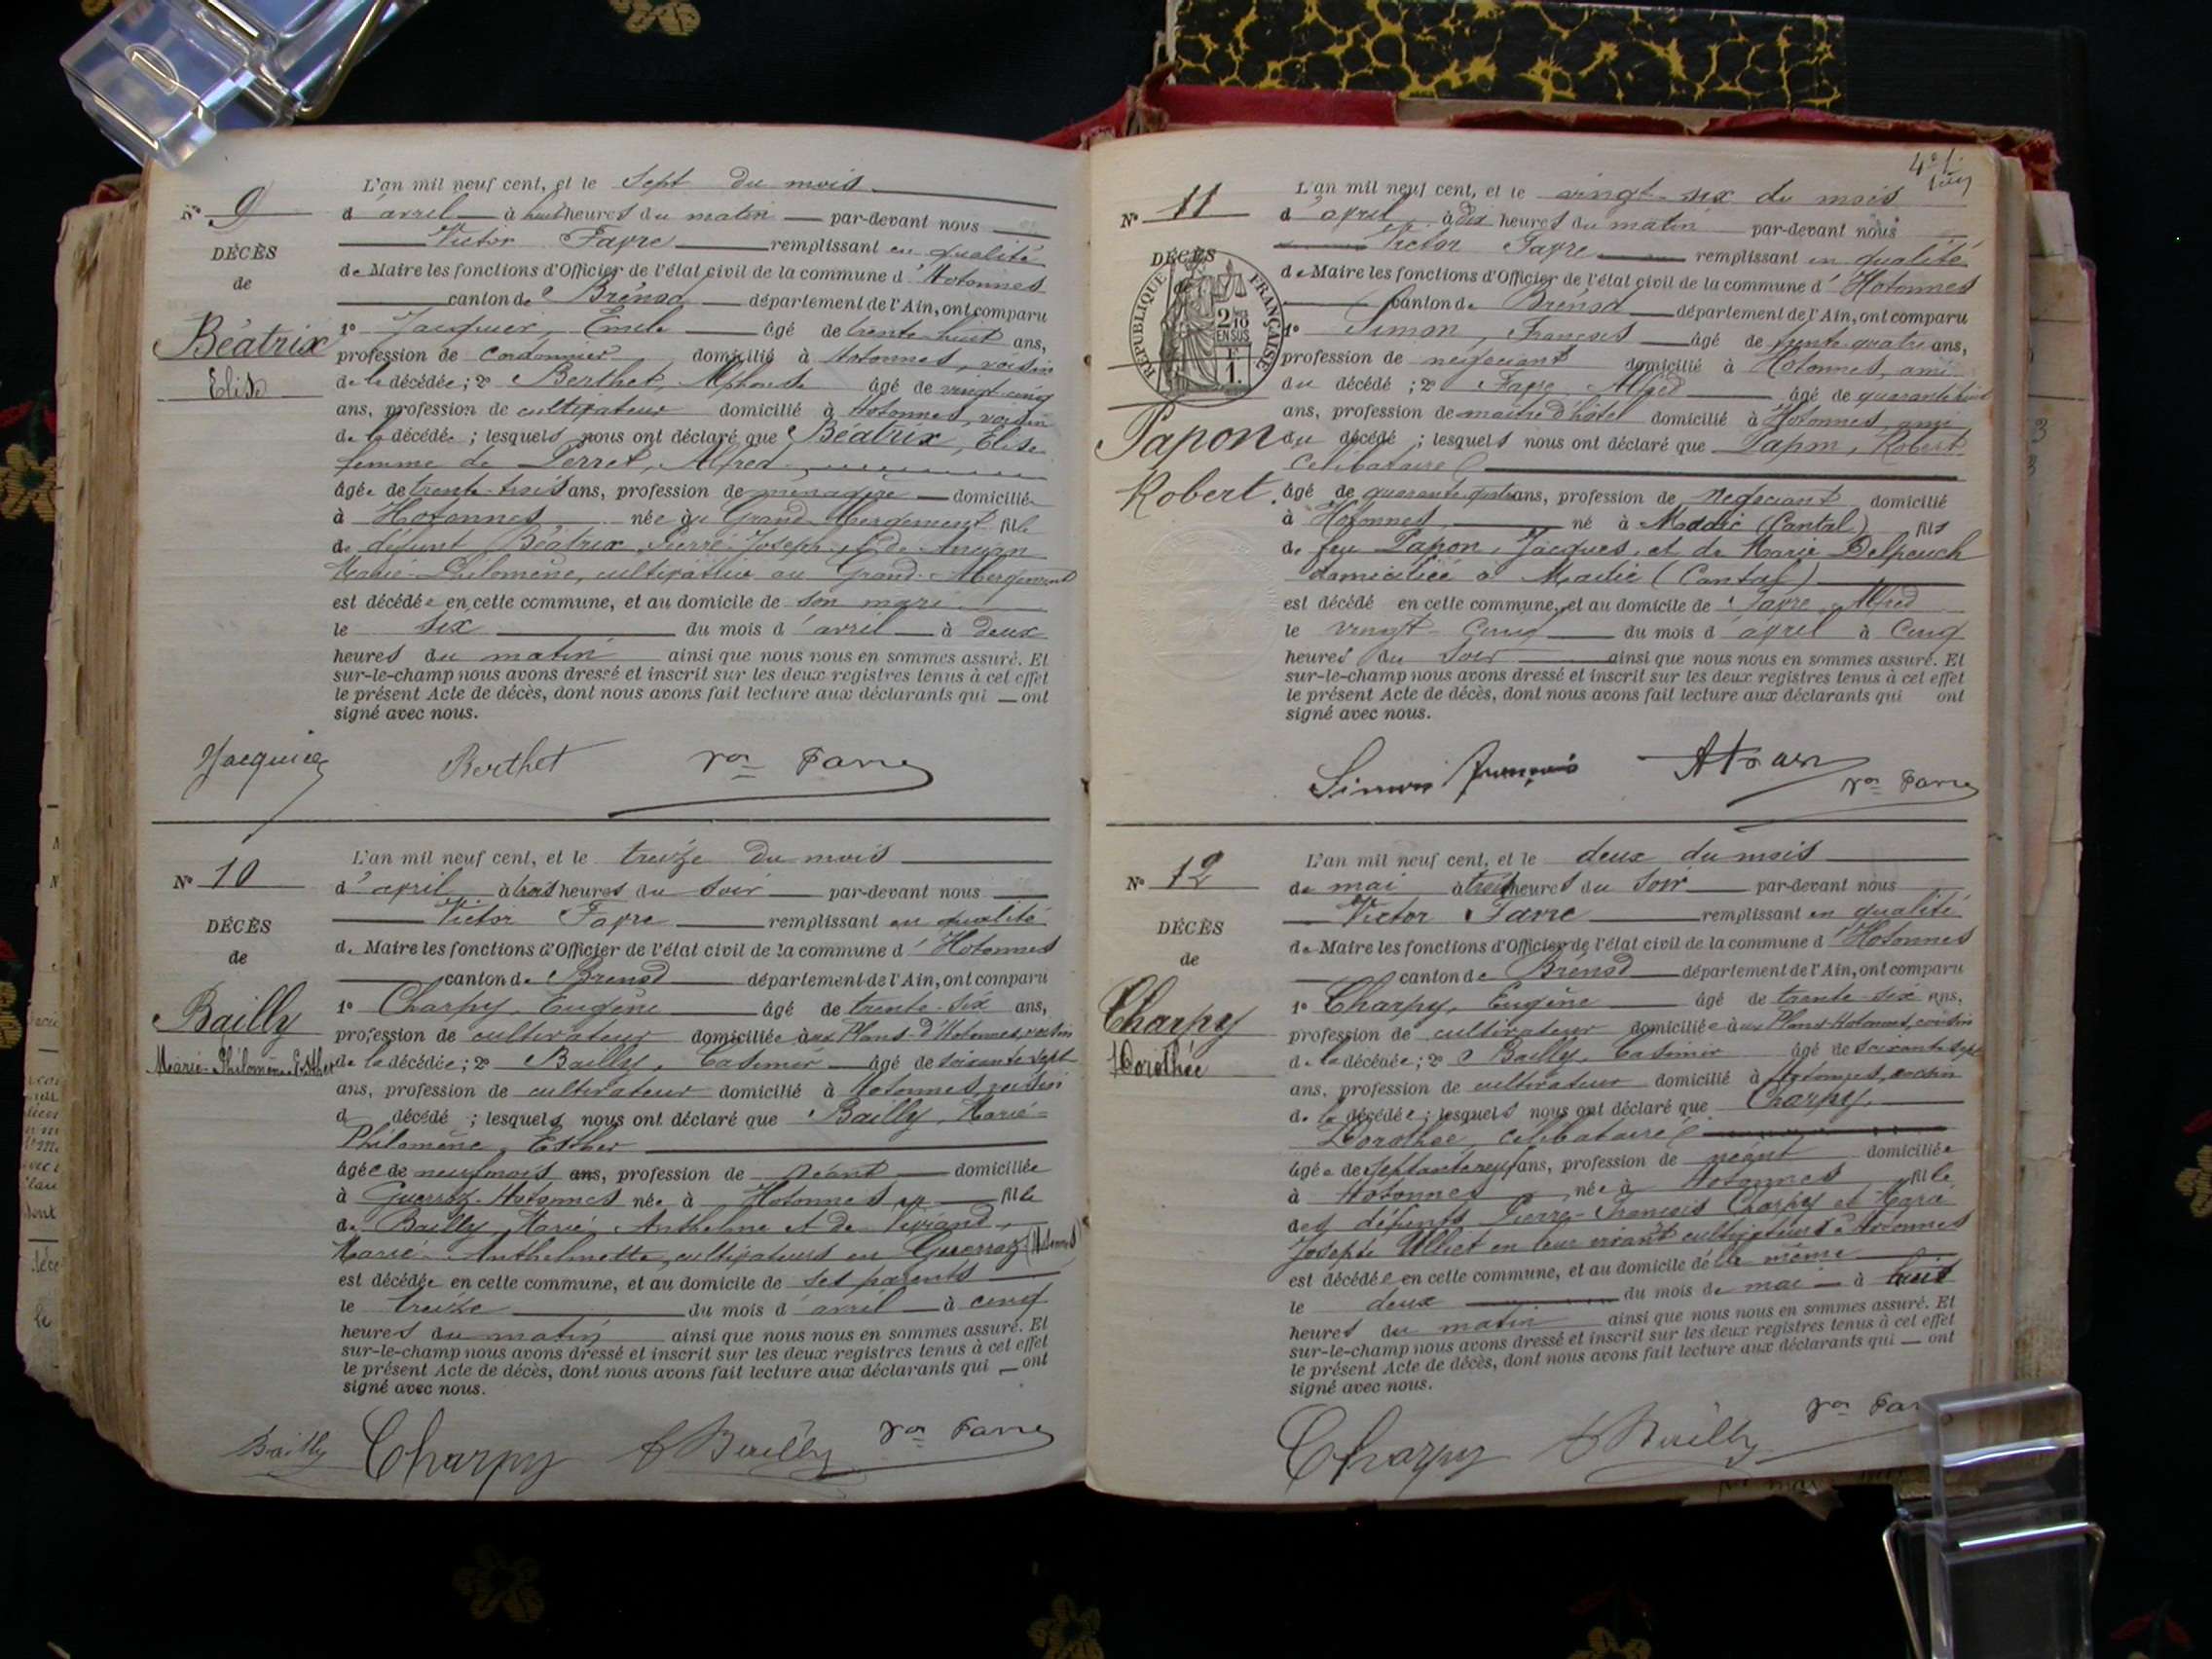 N° 9
DÉCÈS
de
Béatrix
Elise
L'an mil neuf cent, et le sept du mois
d'avril à huit heures du matin par-devant nous
Victor Favre remplissant en qualité
de Maire les fonctions d'Officier de l'état civil de la commune d'Hotonnes
canton de Brénod département de l'Ain, ont comparu
1° Jacquier, Emile âgé de trente huit ans,
profession de cordonnier domicilié à Hotonnes, voisin
de la décédée; 2° Berthet, Alphonse âgé de vingt cinq
ans, profession de cultivateur domicilié à Hotonnes, voisin
de la décédée; lesquels nous ont déclaré que Béatrix, Elise
femme de Perret, Alfred
âgée de trente-trois ans, profession de ménagère domiciliée
à Hotonnes née au Grand Abergement fille
de défunt Béatrix Pierre Joseph et de
Marie-Philomène, cultivatrice au Grand-Abergement
est décédée en cette commune, et au domicile de son mari
le six du mois d'avril à deux
heures du matin ainsi que nous nous en sommes assuré. Et
sur-le-champ nous avons dressé et inscrit sur les deux registres tenus à cet effet
le présent Acte de décès, dont nous avons fait lecture aux déclarants qui ont
signé avec nous.
Jacquier Berthet Vor Favre
N° 10
DÉCÈS
de
Bailly
Marie-Philomène Esther
L'an mil neuf cent, et le treize du mois
d'avril à trois heures du soir par-devant nous
Victor Favre remplissant en qualité
de Maire les fonctions d'Officier de l'état civil de la commune d'Hotonnes
canton de Brénod département de l'Ain, ont comparu
1° Charpy, Eugène âgé de trente-six ans,
profession de cultivateur domiciliée aux Plans d'Hotonnes, voisin
de la décédée; 2° Bailly, Casimir âgé de soixante sept
ans, profession de cultivateur domicilié à Hotonnes, voisin
d décédé; lesquels nous ont déclaré que Bailly, Marie-
Philomène, Esther
âgée de neuf mois ans, profession de néant domiciliée
à Guerraz-Hotonnes née à Hotonnes fille
de Bailly, Marie, Anthelme et de
Marie-Anthelmette, cultivateurs en Guerraz (Hotonnes)
est décédée en cette commune, et au domicile de ses parents
le treize du mois d'avril à cinq
heures du matin ainsi que nous nous en sommes assuré. Et
sur-le-champ nous avons dressé et inscrit sur les deux registres tenus à cet effet
le présent Acte de décès, dont nous avons fait lecture aux déclarants qui ont
signé avec nous.
Bailly Charpy C Bailly Vor Favre
4e f.
N° 11
DÉCÈS
RÉPUBLIQUE FRANÇAISE
2/10 EN SUS
1F.
Papon
Robert
L'an mil neuf cent, et le vingt-six du mois
d'avril à dix heures du matin par-devant nous
Victor Favre remplissant en qualité
de Maire les fonctions d'Officier de l'état civil de la commune d'Hotonnes
canton de Brénod département de l'Ain, ont comparu
1° Simon, François âgé de trente-quatre ans,
profession de négociant domicilié à Hotonnes, ami
du décédé; 2° Favre Alfred âgé de quarante huit
ans, profession de maître d'hôtel domicilié à Hotonnes, ami
du décédé; lesquels nous ont déclaré que Papon, Robert
célibataire
âgé de quarante quatre ans, profession de négociant domicilié
à Hotonnes, né à Madic (Cantal) fils
de feu Papon, Jacques, et de Marie Delpeuch
domiciliée à Madic (Cantal)
est décédé en cette commune, et au domicile de Favre, Alfred
le vingt-cinq du mois d'avril à cinq
heures du soir ainsi que nous nous en sommes assuré. Et
sur-le-champ nous avons dressé et inscrit sur les deux registres tenus à cet effet
le présent Acte de décès, dont nous avons fait lecture aux déclarants qui ont
signé avec nous.
Simon François A Favre Vor Favre
N° 12
DÉCÈS
de
Charpy
Dorothée
L'an mil neuf cent, et le deux du mois
de mai à trois heures du soir par-devant nous
Victor Favre remplissant en qualité
de Maire les fonctions d'Officier de l'état civil de la commune d'Hotonnes
canton de Brénod département de l'Ain, ont comparu
1° Charpy, Eugène âgé de trente-six ans,
profession de cultivateur domiciliée aux Plans-Hotonnes, cousin
de la décédée; 2° Bailly, Casimir âgé de soixante sept
ans, profession de cultivateur domicilié à Hotonnes, voisin
de la décédée; lesquels nous ont déclaré que Charpy,
Dorothée, célibataire
âgée de septante neuf ans, profession de néant domiciliée
à Hotonnes née à Hotonnes fille
des défunts Pierre-François Charpy et Marie
Josephte en leur vivant cultivateurs à Hotonnes
est décédée en cette commune, et au domicile d'elle même
le deux du mois de mai à huit
heures du matin ainsi que nous nous en sommes assuré. Et
sur-le-champ nous avons dressé et inscrit sur les deux registres tenus à cet effet
le présent Acte de décès, dont nous avons fait lecture aux déclarants qui ont
signé avec nous.
Charpy C Bailly Vor